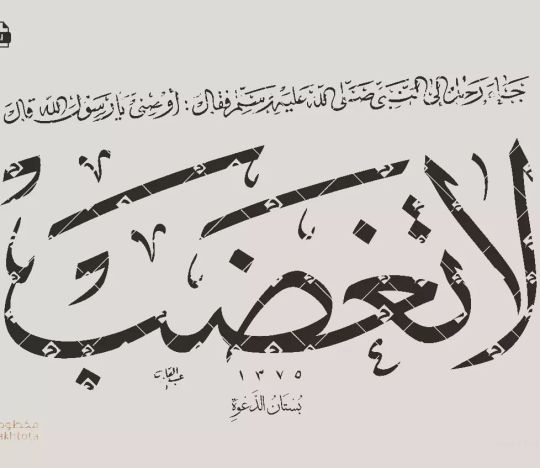 جاء رجل إلى النبي صلى الله عليه وسلم فقال : أوصني يا رسول الله قال
لا تغضب
١٣٧٥
بستان الدعوة
مخطوطة
akhtota